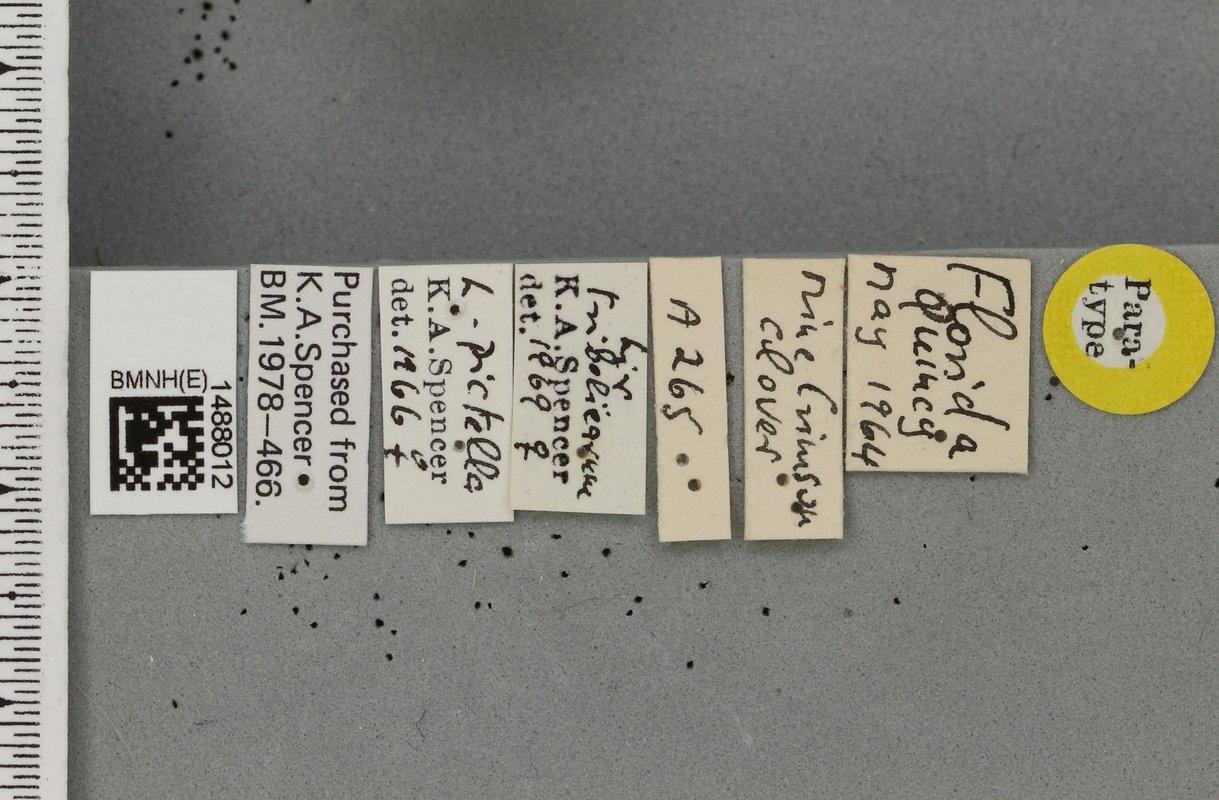 BMNH(E)
1488012
Purchased from
K.A.Spencer
BM.1978–466.
L. pictella
K.A.Spencer
det.1966 ♀
Lir
K.A.Spencer
det.1969 ♀
A 265
mine Crimson
clover
Florida
Quincy
May 1964
Para-
type